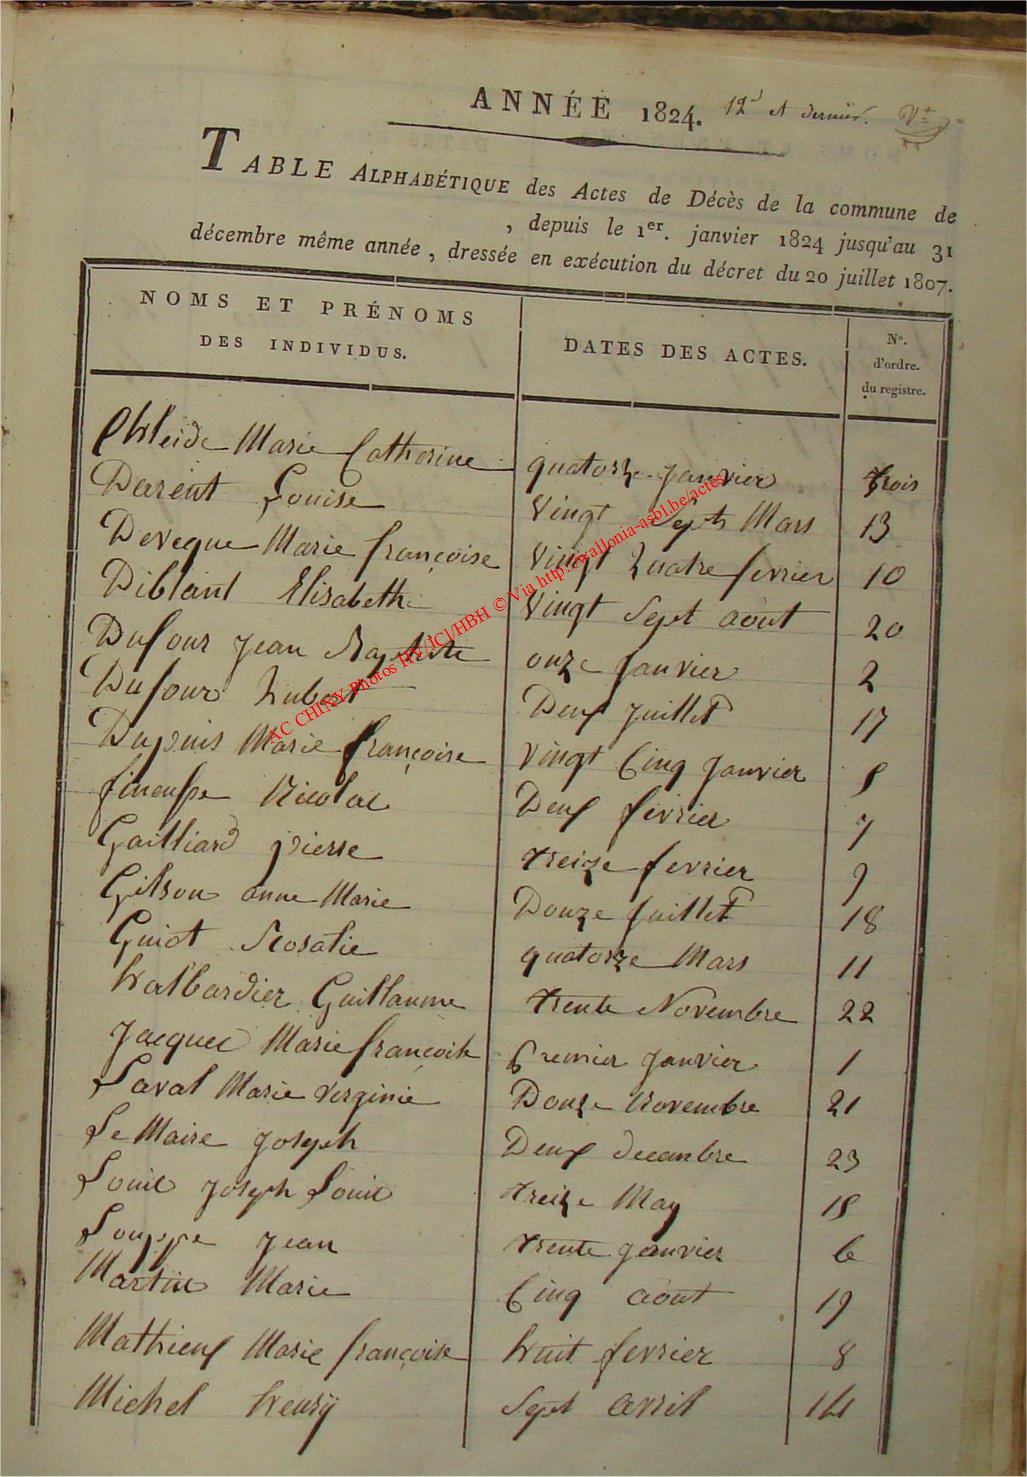 ANNÉE 1824. 12d et dernier.
TABLE ALPHABÉTIQUE des Actes de Décès de la commune de
, depuis le 1er. janvier 1824 jusqu'au 31
décembre même année, dressée en exécution du décret du 20 juillet 1807.
NOMS ET PRÉNOMS DES INDIVIDUS. DATES DES ACTES. No. d'ordre. du registre.
Marie Catherine quatorze Janvier trois
Darent Louise Vingt Sept Mars 13
Deveque Marie françoise Vingt Quatre fevrier 10
Diblaint Elisabeth Vingt Sept aout 20
Dufour Jean Baptiste onze Janvier 2
Dufour hubert Deux Juillet 17
Dupuis Marie françoise Vingt Cinq Janvier 5
fineusse Nicolas Deux février 7
Gailliard pierre treize fevrier 9
Gilson anne Marie Douze Juillet 18
Guiot Rosalie quatorze Mars 11
halbardier Guillaume trente Novembre 22
Jacques Marie françoise premier Janvier 1
Laval Marie Verginie Douze Novembre 21
Le Maire Joseph Deux decembre 23
Louis Joseph Louis treize May 15
Louppe Jean trente Janvier 6
Martin Marie Cinq aout 19
Mathieux Marie françoise huit fevrier 8
Michel henry Sept avril 14
AC CHINY Photos HY/JCJ/HBH © Via http://wallonia-asbl.be/actes